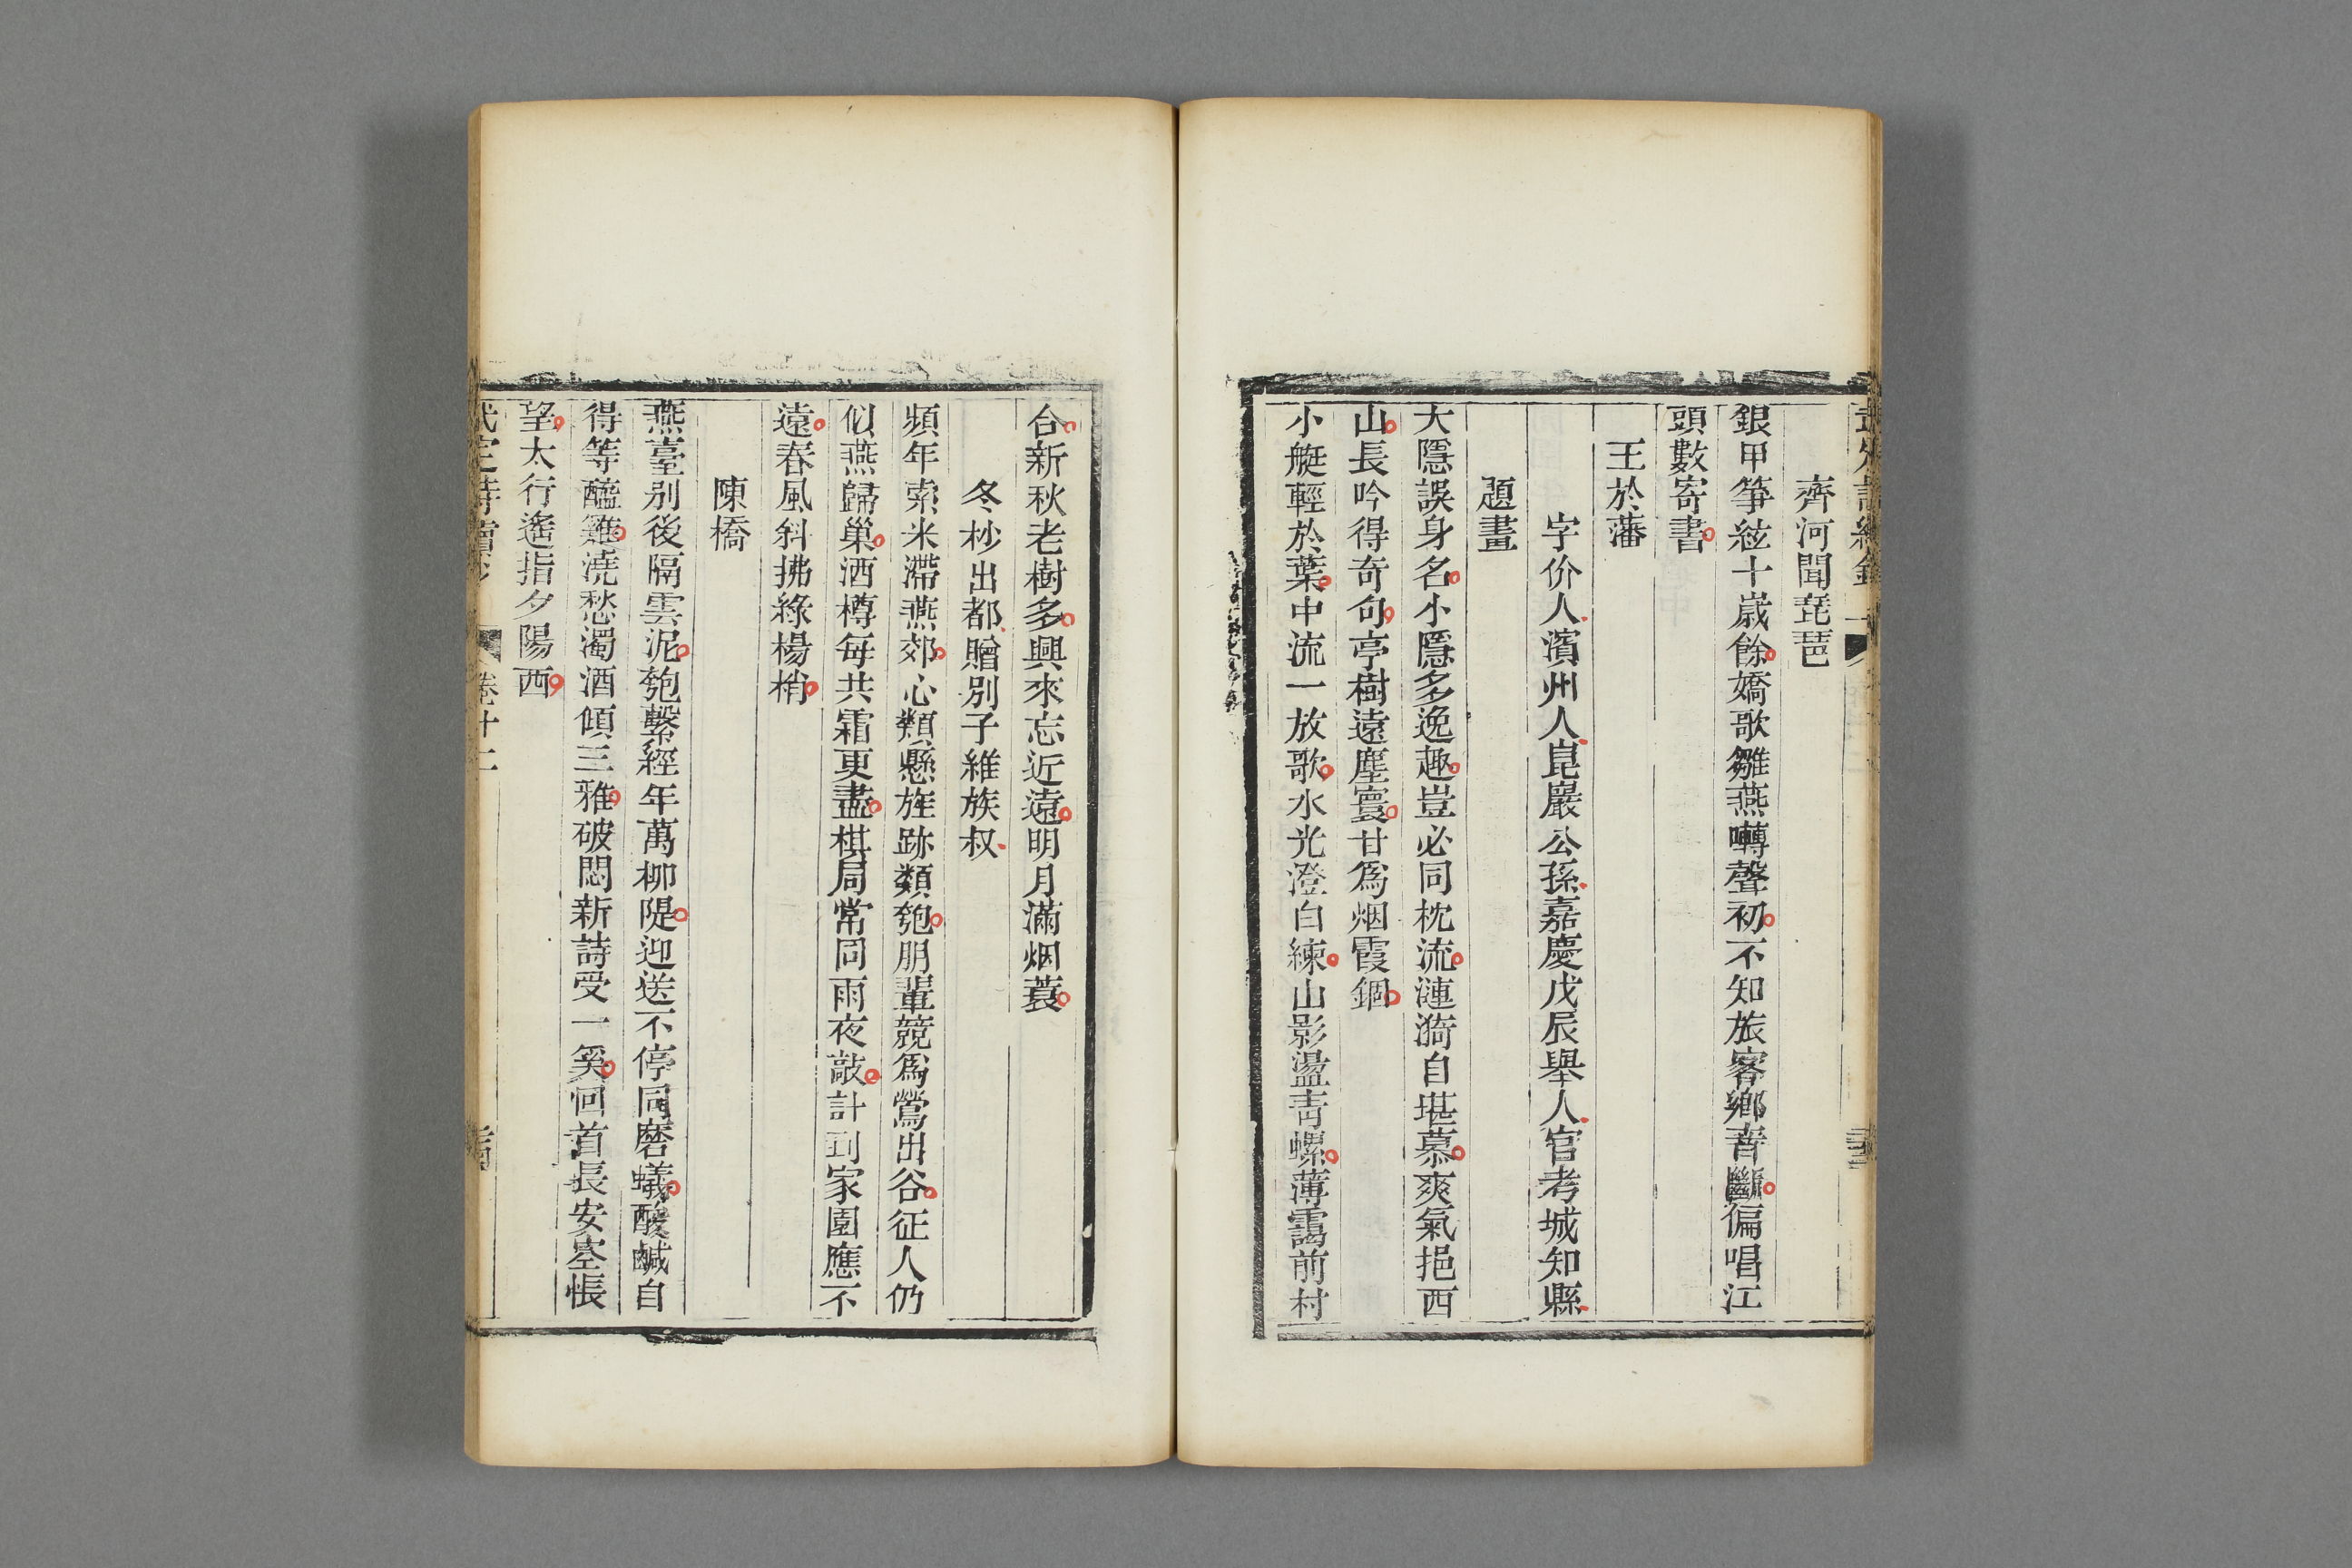 齊河聞琵琶
銀甲箏絃十歲餘嬌歌雛燕囀聲初不知旅客鄉音斷偏唱江
頭數寄書
王於藩
字价人濱州人崑巖公孫嘉慶戊辰舉人官考城知縣
題畫
大隱誤身名小隱多逸趣豈必同枕流漣漪自堪慕爽氣挹西
山長吟得奇句亭樹遠塵寰甘爲烟霞錮
小艇輕於葉中流一放歌水光澄白練山影盪青螺薄靄前村
合新秋老樹多興來忘近遠明月滿烟蓑
冬杪出都贈別子維族叔
頻年索米滯燕郊心類懸旌跡類匏朋輩競爲鶯出谷征人仍
似燕歸巢酒樽每共霜更盡棋局常同雨夜敲計到家園應不
遠春風斜拂綠楊梢
陳橋
燕臺别後隔雲泥匏繫經年萬柳隄迎送不停同磨蟻酸鹹自
得等醯雞澆愁濁酒傾三雅破悶新詩受一奚回首長安空悵
望太行遙指夕陽西
武定詩續鈔 卷十二